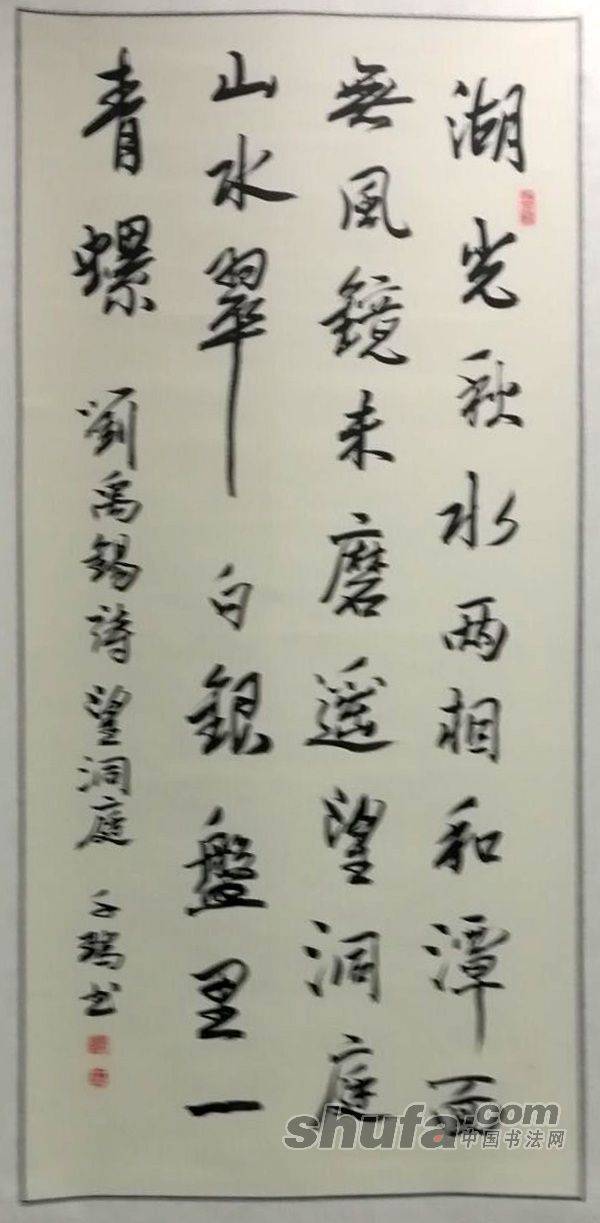 湖光秋水两相和潭面
無風鏡未磨遥望洞庭
山水翠白銀盤里一
青螺 劉禹錫詩 望洞庭 书
shufa.com
中国书法网